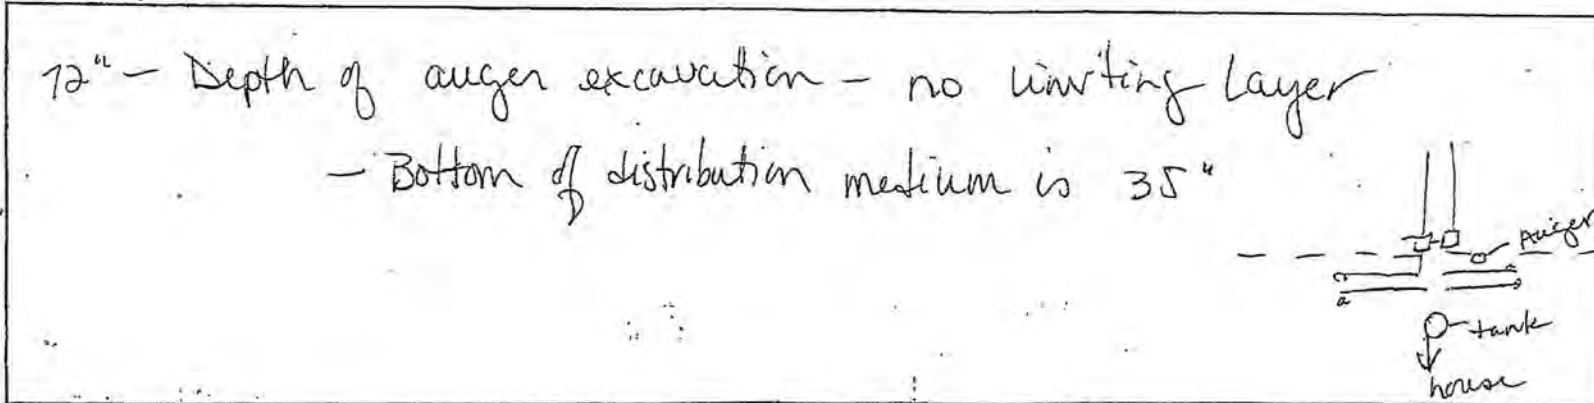 72" - Depth of auger excavation - no limiting Layer
- Bottom of distribution medium is 35"
Auger
tank
house